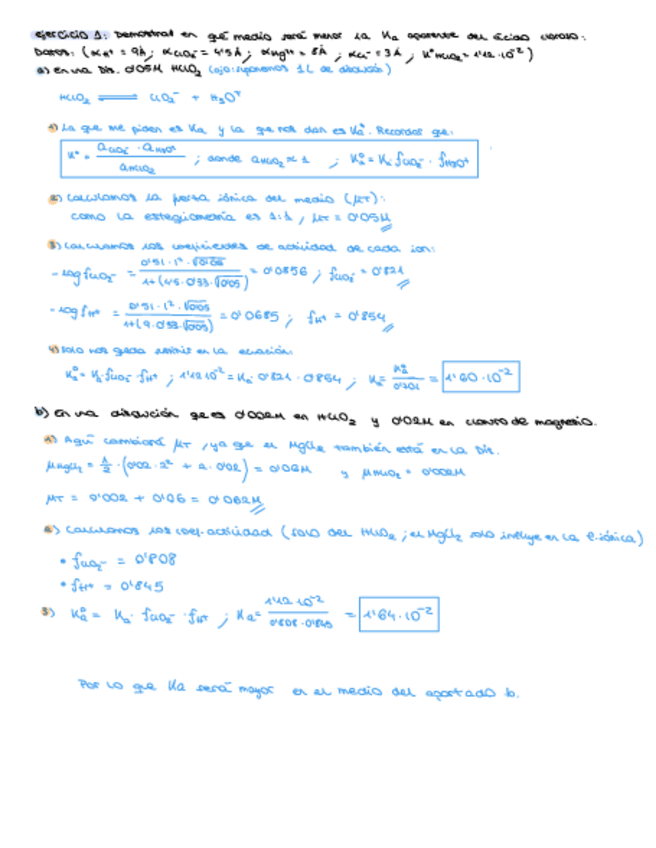 ejercicio 1: Demostrar en qué medio será menor la Ka aparente del ácido cloroso:
Datos: (αH⁺ = 9Å; αClO₂⁻ = 4'5Å; αMg²⁺ = 8Å; αCl⁻ = 3Å; K°HClO₂ = 1'12·10⁻²)
a) En una Dis. 0'05M HClO₂ (ojo: suponemos 1L de disolución)
HClO₂ ⇌ ClO₂⁻ + H₃O⁺
1) La que me piden es Ka y la que nos dan es Ka°. Recordar que:
K° = aClO₂⁻ · aH₃O⁺ / aHClO₂ ; donde aHClO₂ ≈ 1 ; Ka° = Ka fClO₂⁻ · fH₃O⁺
2) Calculamos la fuerza iónica del medio (μT):
como la estequiometría es 1:1, μT = 0'05M
3) Calculamos los coeficientes de actividad de cada ion:
-log fClO₂⁻ = 0'51·1²·√0'05 / 1+(4'5·0'33·√0'05) = 0'0856 ; fClO₂⁻ = 0'821
-log fH⁺ = 0'51·1²·√0'05 / 1+(9·0'33·√0'05) = 0'0685 ; fH⁺ = 0'854
4) Solo nos queda sustituir en la ecuación:
Ka° = Ka·fClO₂⁻·fH⁺ ; 1'12·10⁻² = Ka·0'821·0'854 ; Ka = Ka° / 0'701 = 1'60·10⁻²
b) En una disolución que es 0'002M en HClO₂ y 0'02M en cloruro de magnesio.
1) Aquí cambiará μT, ya que el MgCl₂ también está en la Dis.
μMgCl₂ = 1/2 · (0'02·2² + 2·0'02) = 0'06M y μHClO₂ = 0'002M
μT = 0'002 + 0'06 = 0'062M
2) Calculamos los coef. actividad (solo del HClO₂; el MgCl₂ solo influye en la f.iónica)
• fClO₂⁻ = 0'808
• fH⁺ = 0'845
3) Ka° = Ka·fClO₂⁻·fH⁺ ; Ka = 1'12·10⁻² / 0'808·0'845 = 1'64·10⁻²
Por lo que Ka será mayor en el medio del apartado b.